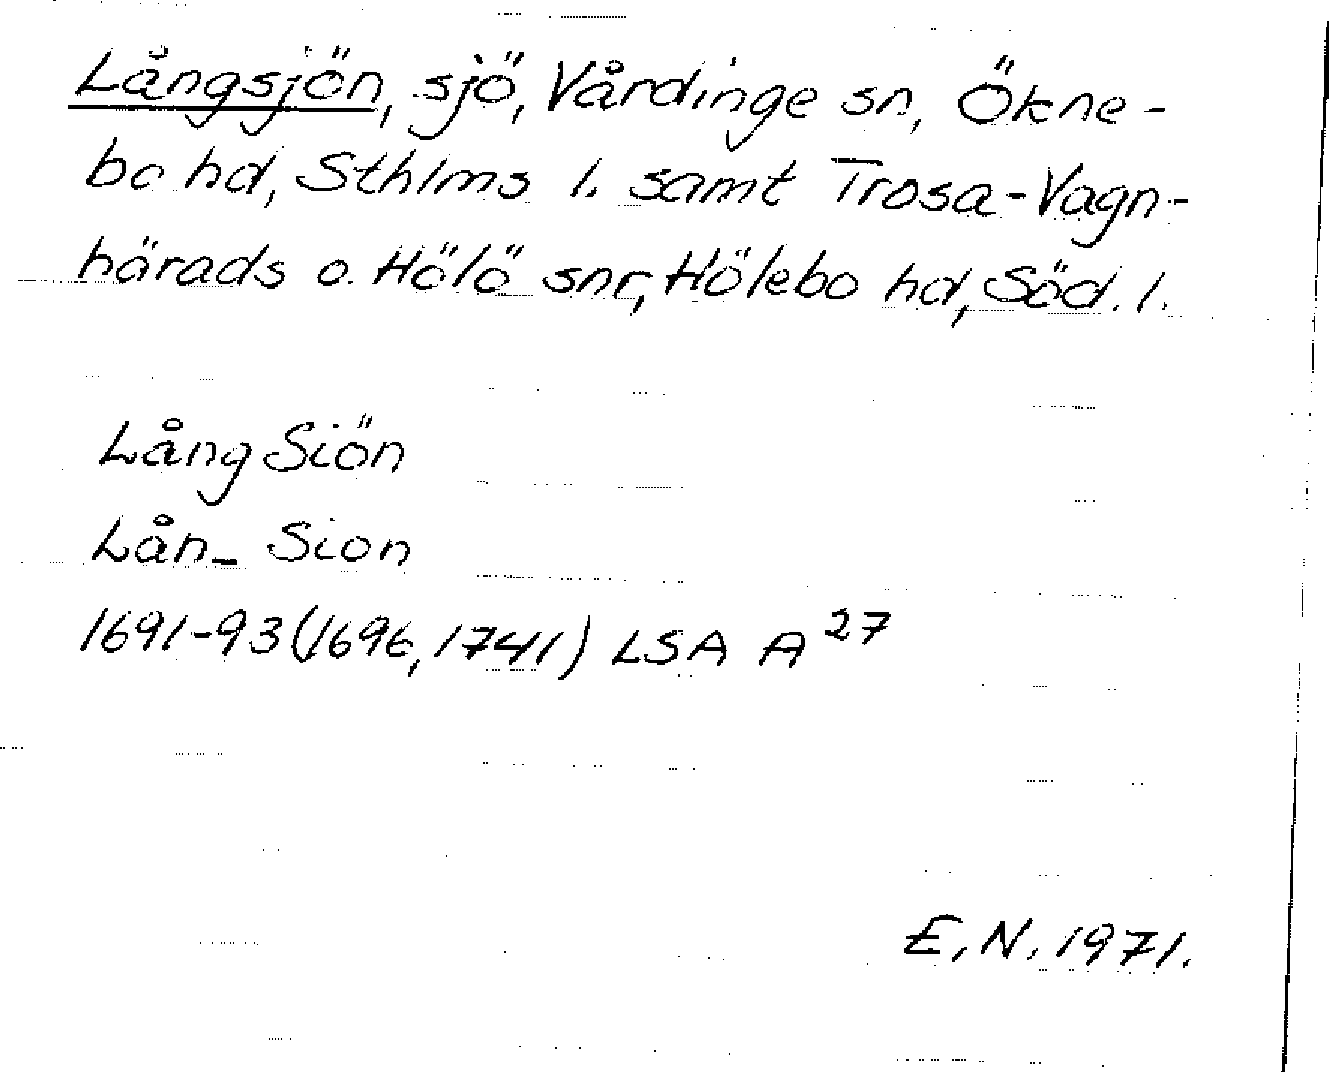 Långsjön, sjö, Vårdinge sn, Ökne-
bo hd, Sthlms l. samt Trosa-Vagn-
härads o. Hölö snr, Hölebo hd, Söd. l.
Lång Siön
Lån_ Sion
1691-93 (1696, 1741) LSA A 27
E. N. 1971.